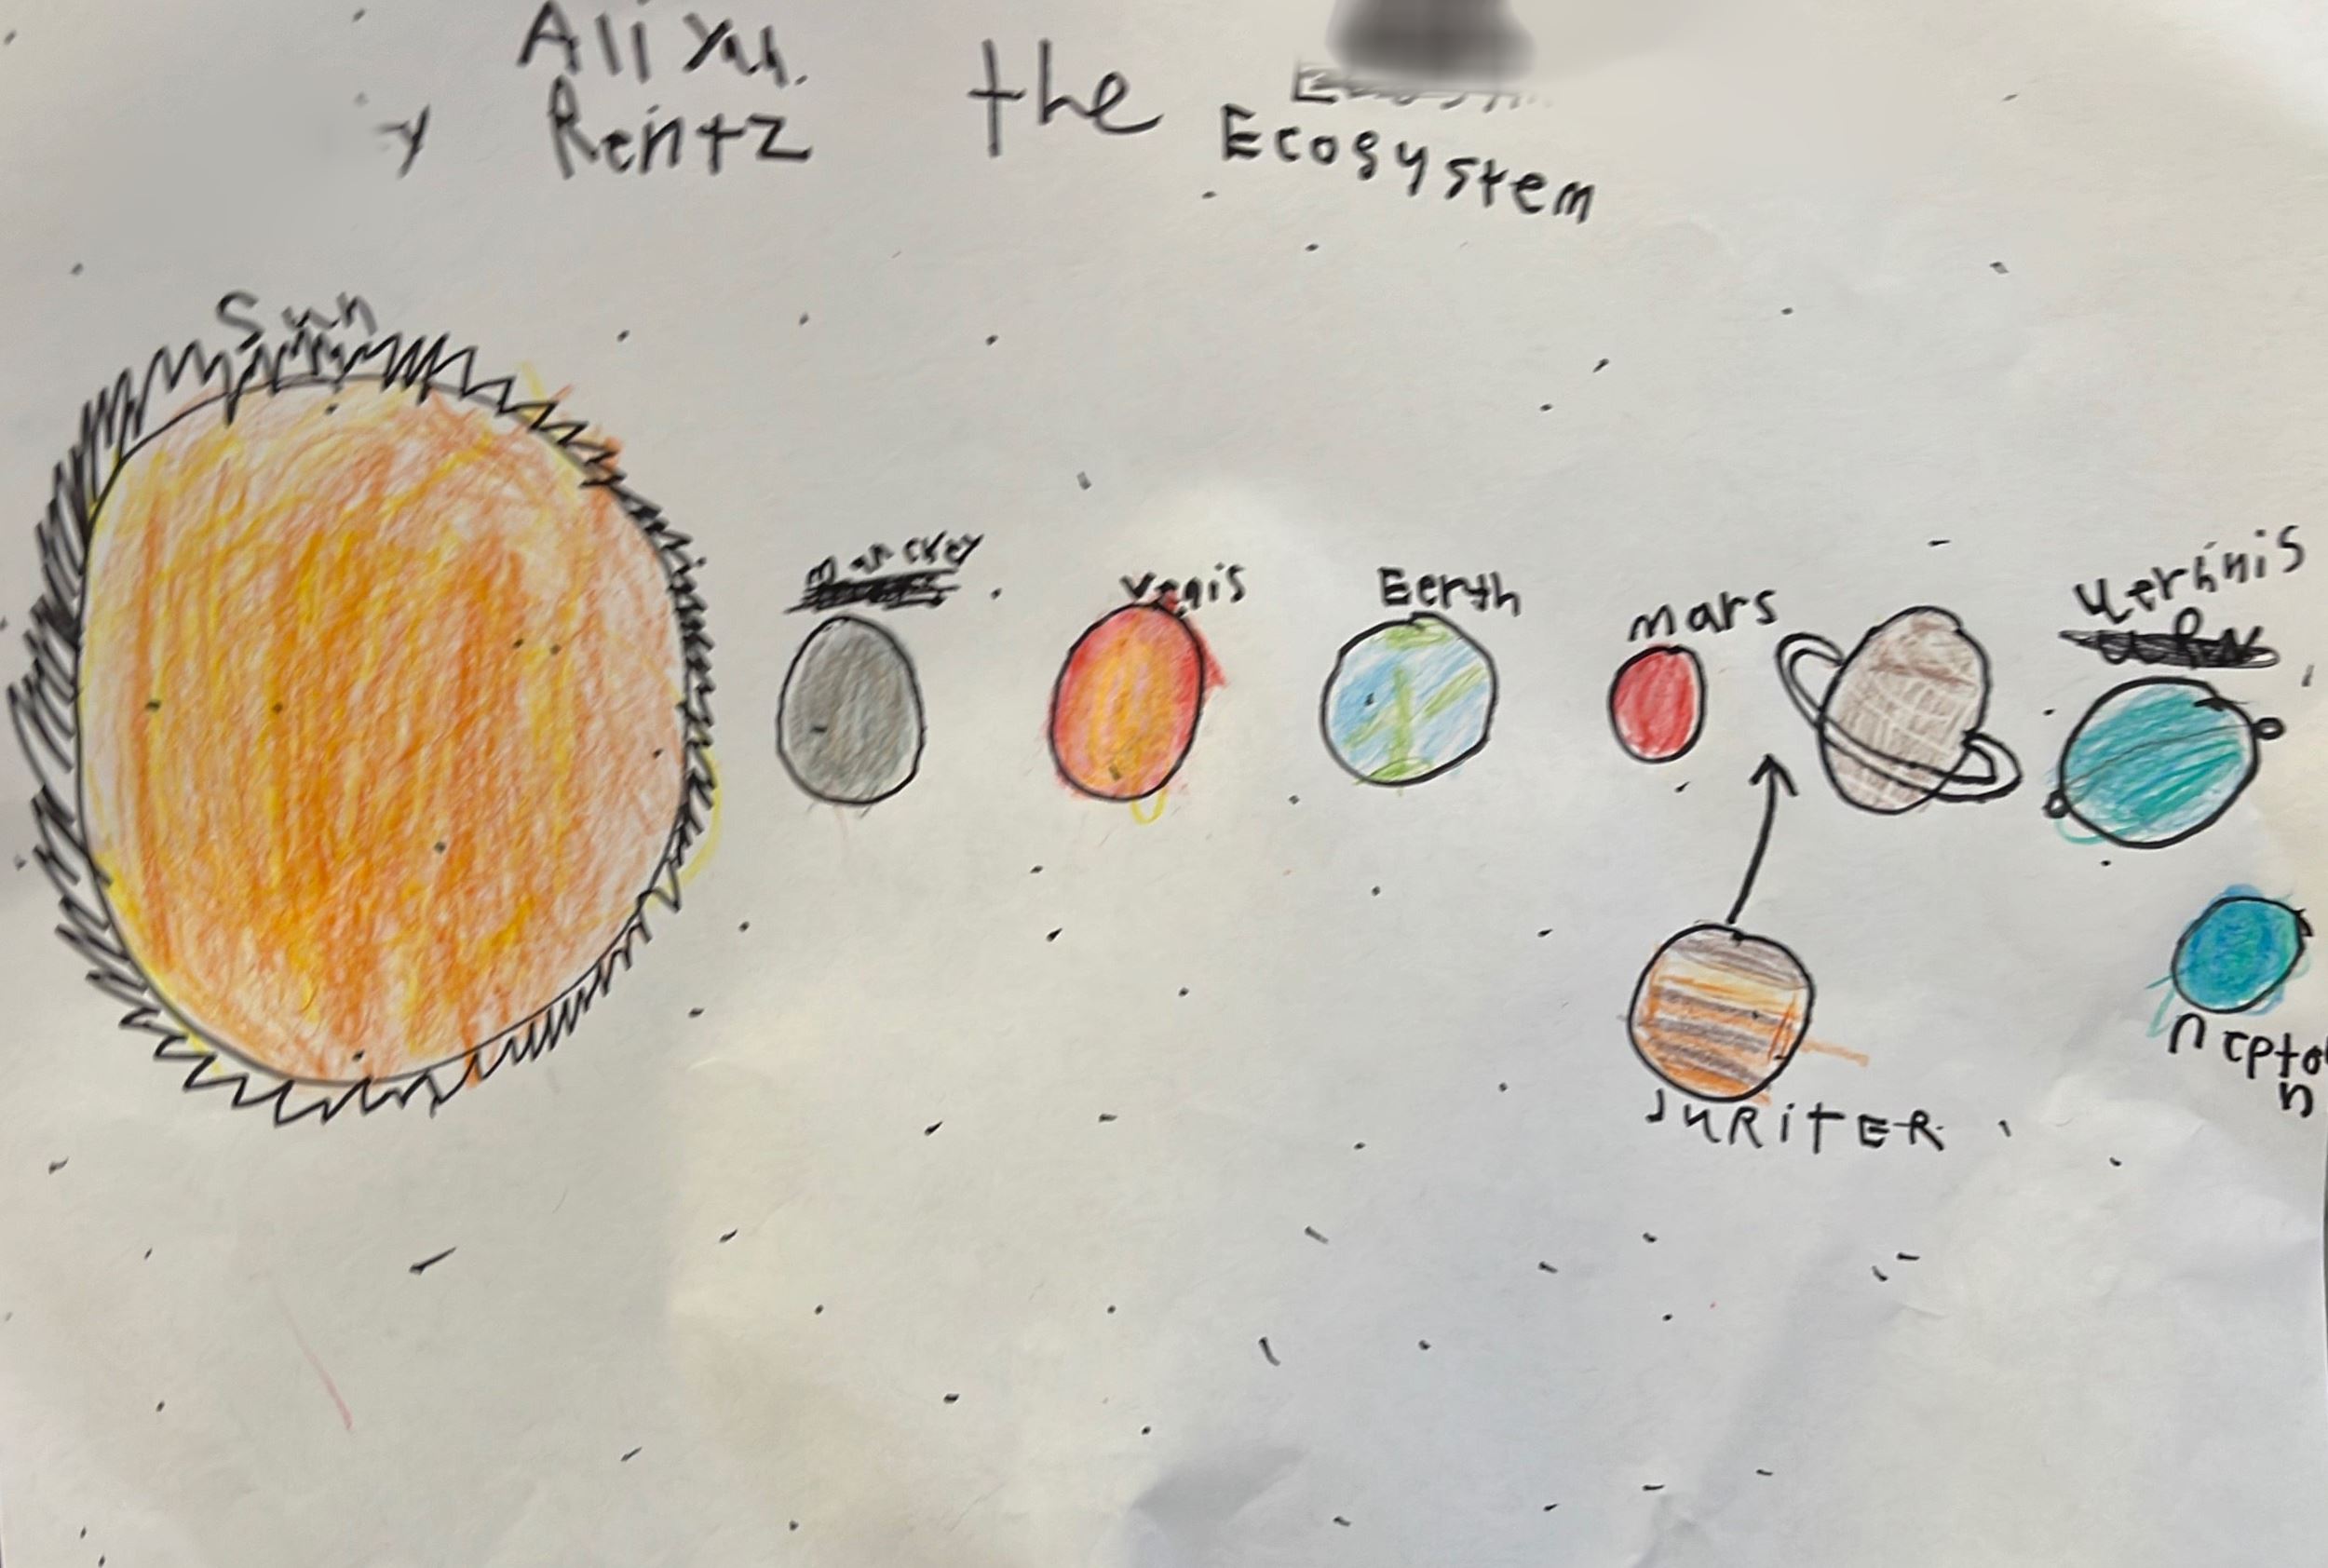 Aliyah.
y Rentz
the
Ecosystem
Sun
marckey
Venis
Eerth
mars
uerhinis
JUPITER
nepto
n